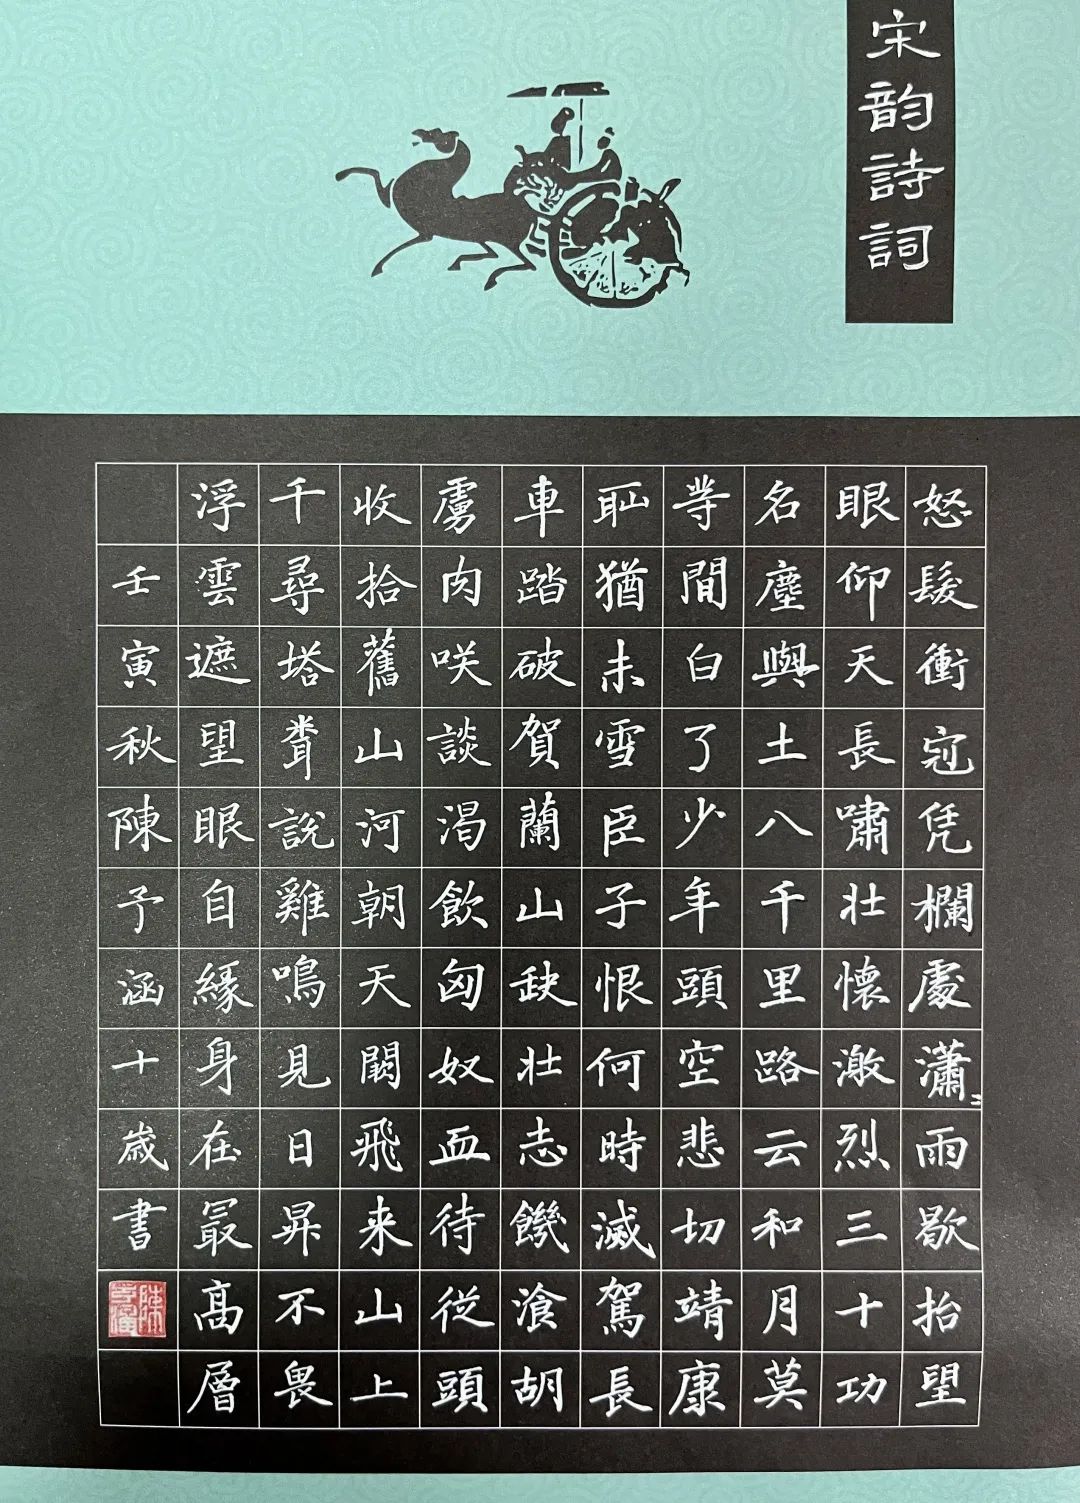 宋韵詩詞
怒髮衝冠凭欄處瀟〻雨歇抬望
眼仰天長嘯壯懷激烈三十功
名塵與土八千里路云和月莫
等間白了少年頭空悲切靖康
耻猶未雪臣子恨何時滅駕長
車踏破賀蘭山缺壯志饑飡胡
虜肉咲談渴飲匈奴血待從頭
收拾舊山河朝天闕飛来山上
千尋塔聞說雞鳴見日昇不畏
浮雲遮望眼自緣身在最高層
壬寅秋陳予涵十歲書
陳予涵